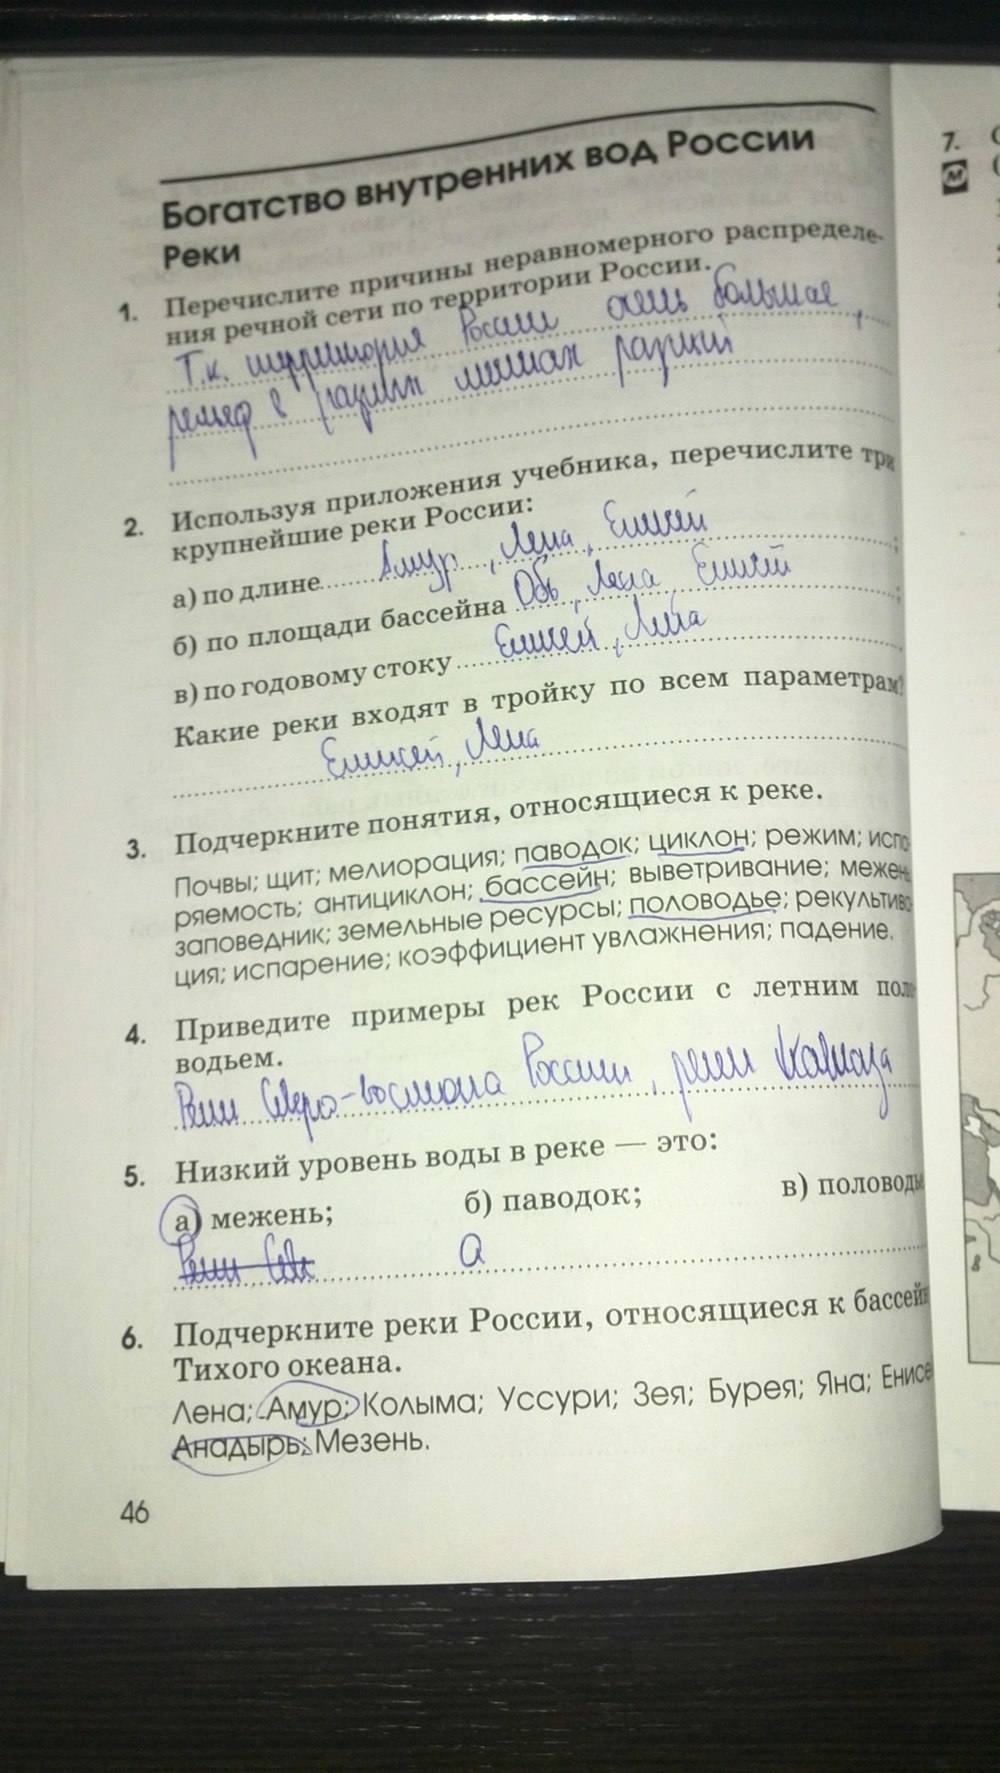 Богатство внутренних вод России
Реки
1. Перечислите причины неравномерного распределе-
ния речной сети по территории России.
Т.к. территория России очень большая,
рельеф в разных местах разный
2. Используя приложения учебника, перечислите три
крупнейшие реки России:
а) по длине Амур, Лена, Енисей;
б) по площади бассейна Обь, Лена, Енисей;
в) по годовому стоку Енисей, Лена
Какие реки входят в тройку по всем параметрам?
Енисей, Лена
3. Подчеркните понятия, относящиеся к реке.
Почвы; щит; мелиорация; паводок; циклон; режим; испа
ряемость; антициклон; бассейн; выветривание; межень
заповедник; земельные ресурсы; половодье; рекультива
ция; испарение; коэффициент увлажнения; падение.
4. Приведите примеры рек России с летним поло
водьем.
Реки Северо-востока России, реки Кавказа
5. Низкий уровень воды в реке — это:
а) межень; б) паводок; в) половодь
Реки Сев а
6. Подчеркните реки России, относящиеся к бассейн
Тихого океана.
Лена; Амур; Колыма; Уссури; Зея; Бурея; Яна; Енисе
Анадырь; Мезень.
46
7.
М
8